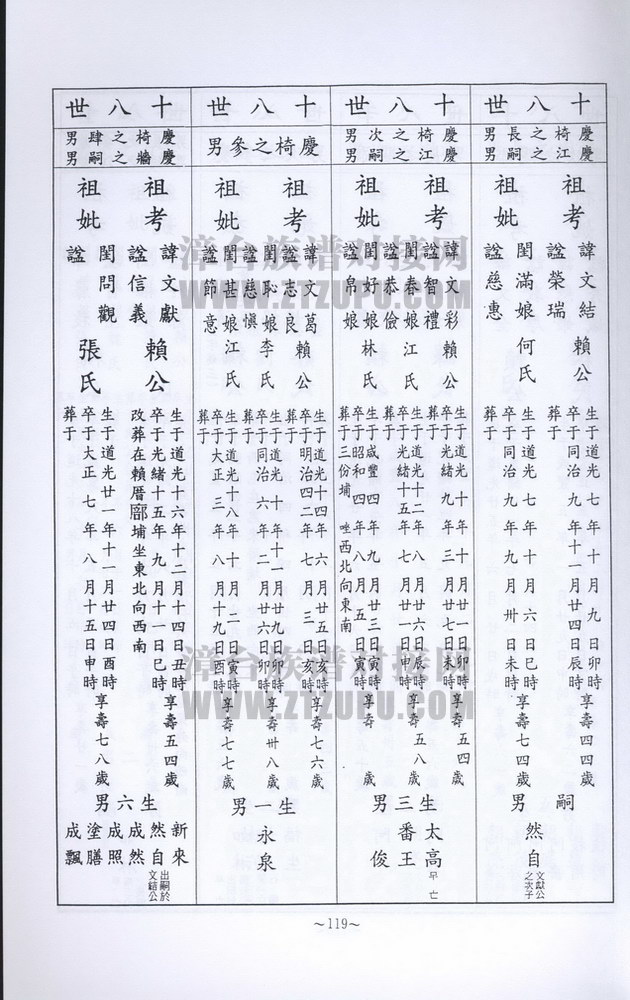 十八世
慶椅之長男
慶江之嗣男
祖考
祖妣
諱文結
諡榮瑞
賴公
閨滿娘
諡慈惠
何氏
生于道光七年十月九日卯時
卒于同治九年十一月廿四日辰時享壽四四歲
葬于
生于道光七年十月六日巳時
卒于同治九年九月卅日未時享壽七四歲
葬于
嗣男
然自文獻公之次子
十八世
慶椅之次男
慶江之嗣男
祖考
祖妣
諱文彩
諡智禮
賴公
閨春娘
諡恭儉
江氏
閨好娘
諡帛娘
林氏
生于道光十年十月廿一日卯時
卒于光緒九年三月廿七日未時享壽五四歲
葬于
生于道光十二年八月廿六日辰時
卒于光緒十五年七月廿一日申時享壽五八歲
葬于
生于咸豐四年九月廿三日寅時
卒于昭和四年八月五日寅時享壽 歲
葬于三份埔 坐西北向東南
生三男
太高早亡
番王
俊
十八世
慶椅之參男
祖考
祖妣
諱文葛
諡志良
賴公
閨恥娘
諡慈慎
李氏
閨甚娘
諡節意
江氏
生于道光十四年六月廿五日亥時
卒于明治四二年七月三日亥時享壽七六歲
葬于
生于道光十年十一月廿九日卯時
卒于同治六年二月廿六日卯時享壽卅八歲
葬于
生于道光十八年十月二日寅時
卒于大正三年八月十九日酉時享壽七七歲
葬于
生一男
永泉
十八世
慶椅之肆男
慶牆之嗣男
祖考
祖妣
諱文獻
諡信義
賴公
閨問觀
諡
張氏
生于道光十六年十二月十四日丑時
卒于光緒十五年九月十一日巳時享壽五四歲
改葬在賴厝廍埔坐東北向西南
生于道光廿一年十一月廿四日酉時
卒于大正七年八月十五日申時享壽七八歲
葬于
生六男
新來
然自出嗣於文結公
成然
成照
塗膳
成飄
~119~
漳台族谱对接网
WWW.ZTZUPU.COM
漳台族谱对接网
WWW.ZTZUPU.COM